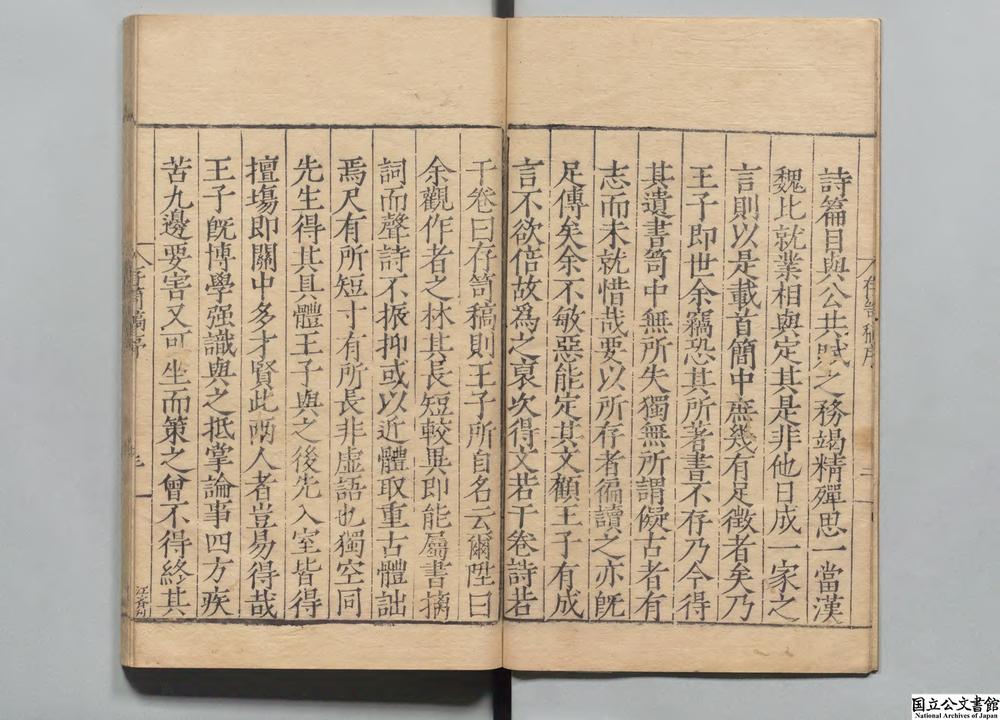 詩篇目與公共賦之務竭精殫思一當漢
魏比就業相與定其是非他日成一家之
言則以是載首簡中庶幾有足徵者矣乃
王子即世余竊恐其所著書不存乃今得
其遺書笥中無所失獨無所謂儗古者有
志而未就惜哉要以所存者徧讀之亦旣
足傳矣余不敏惡能定其文顧王子有成
言不欲倍故爲之裒次得文若干卷詩若
干卷曰存笥稿則王子所自名云爾陞曰
余觀作者之林其長短較異即能屬書摛
詞而聲詩不振抑或以近體取重古體詘
焉尺有所短寸有所長非虛語也獨空同
先生得其具體王子與之後先入室皆得
擅塲即關中多才賢此兩人者豈易得哉
王子旣博學强識與之抵掌論事四方疾
苦九邊要害又可坐而策之曾不得終其
存笥稿序
二
存笥稿序
三
国立公文書館
National Archives of Japan